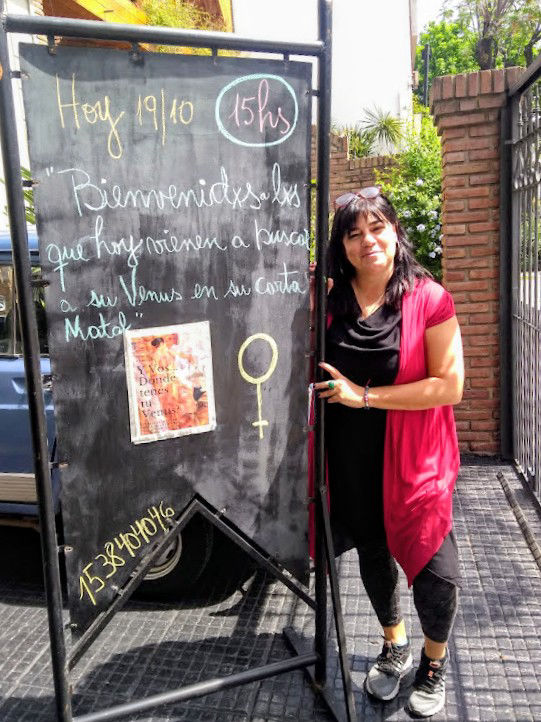 Hoy 19|10 15hs
"Bienvenidxs a lxs
que hoy vienen a buscar
a su Venus en su carta
Matal"
Y Vos...
Dónde
tenes
tu
Venus?
1538404046